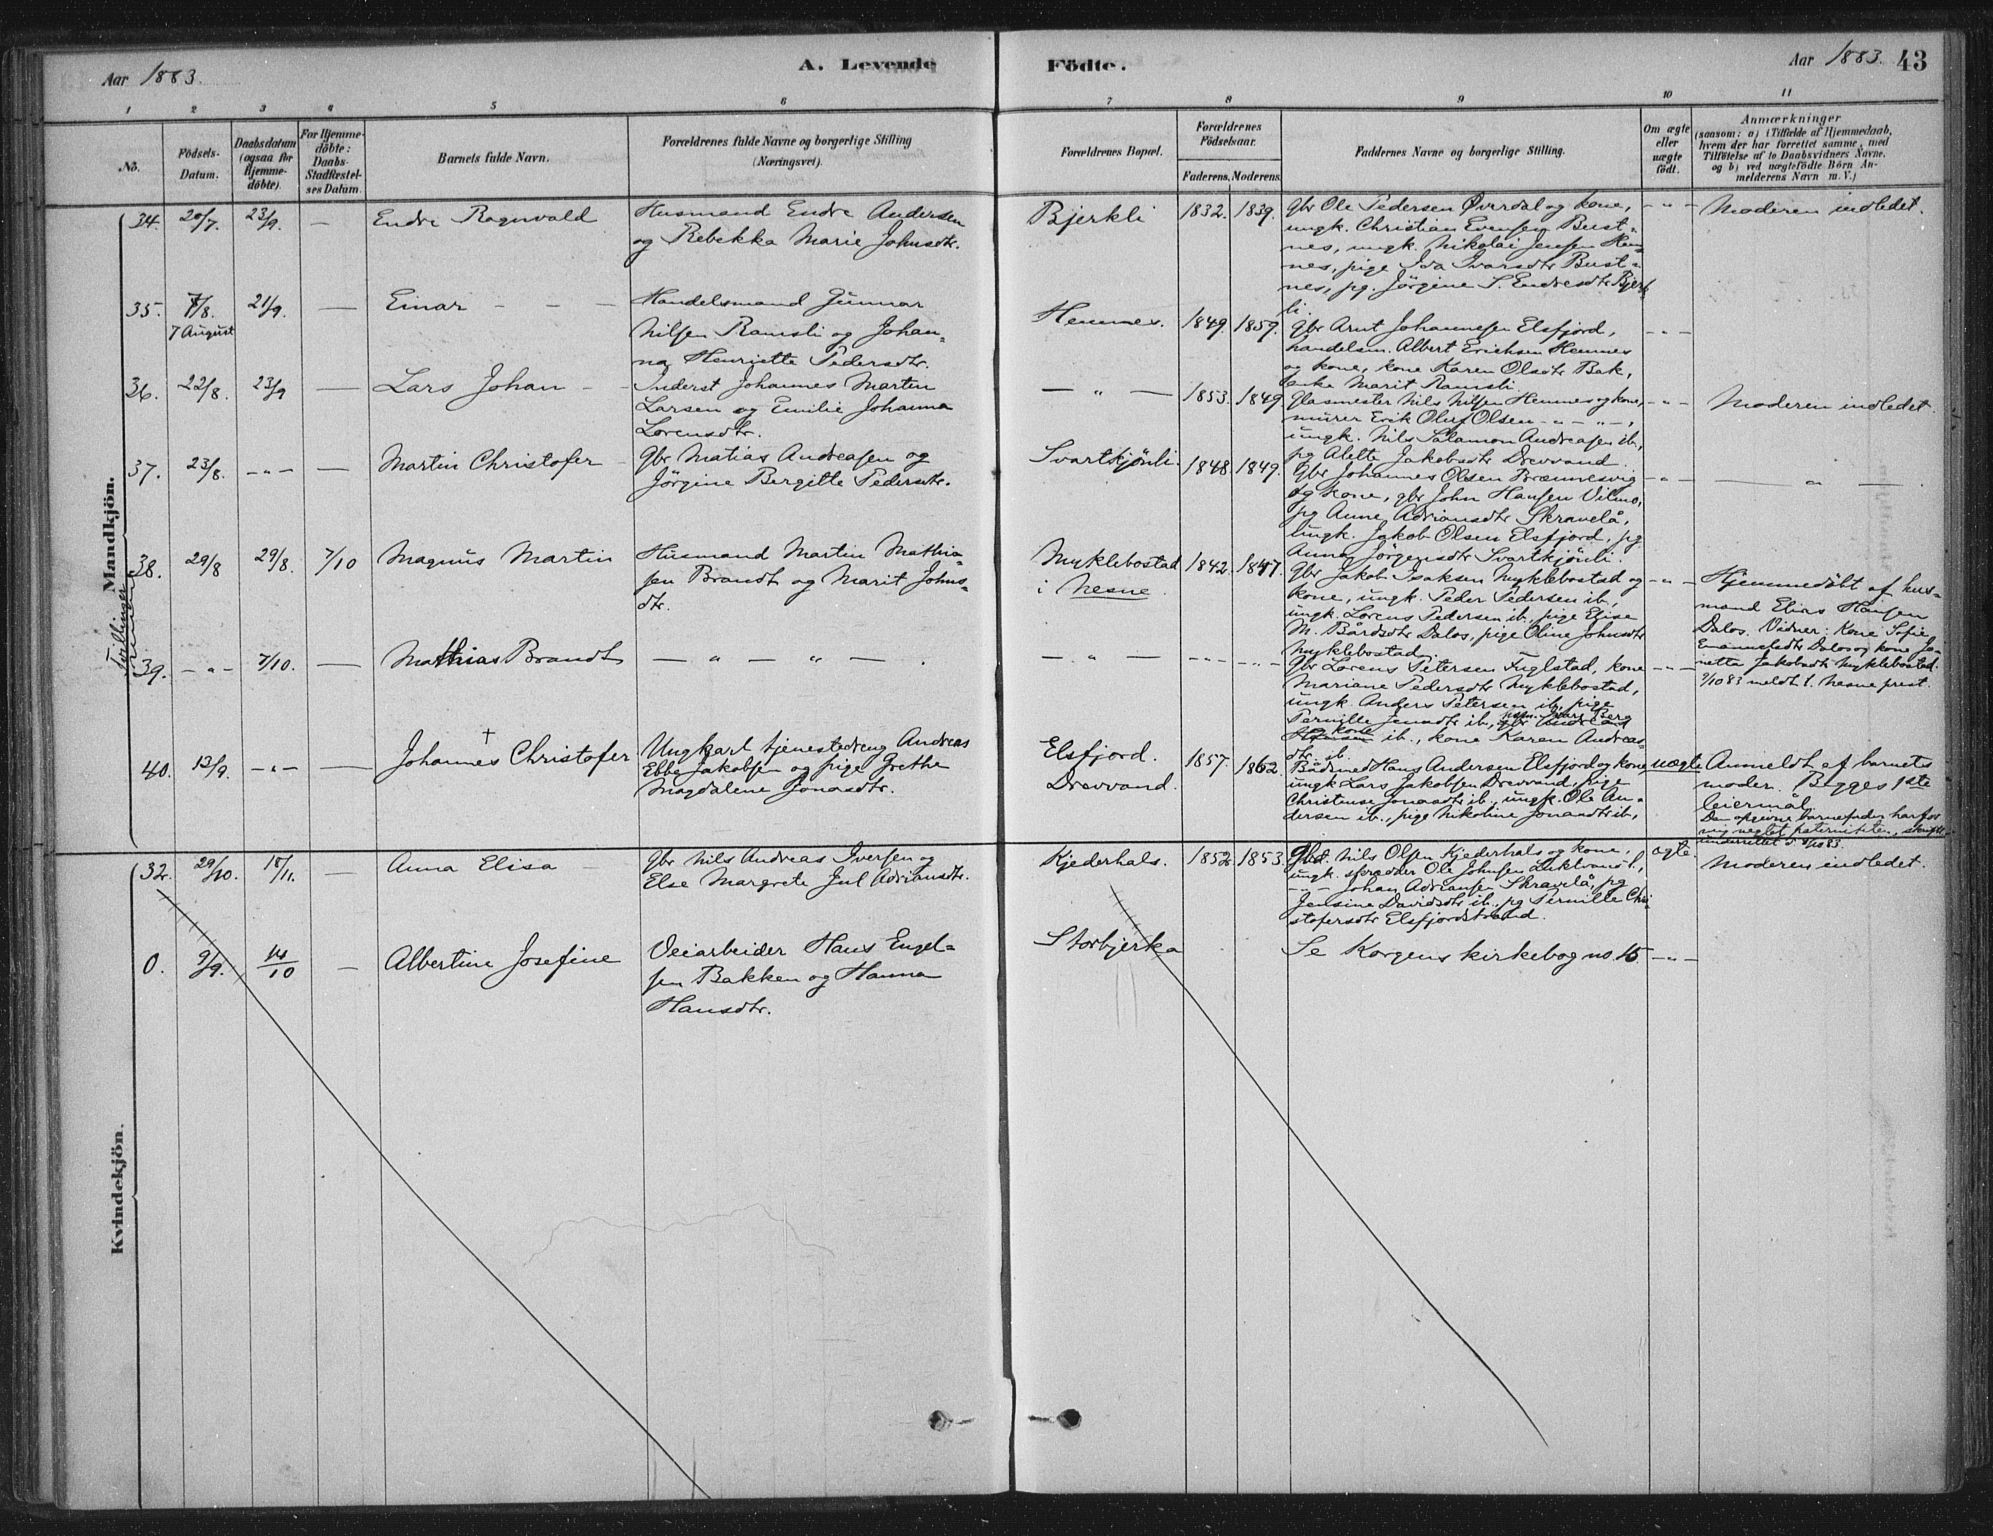 Aar 1883.
A. Levende
Födte.
Aar 1883. 43
1 2 3 4 5 6 7 8 9 10 11
No.
Födsels-
Datum.
Daabsdatum
(ogsaa for
Hjemme-
döbte).
For Hjemme-
döbte:
Daabs-
Stadfæstel-
ses Datum.
Barnets fulde Navn.
Forældrenes fulde Navne og borgerlige Stilling
(Næringsvei).
Forældrenes Bopæl.
Forældrenes
Födselsaar.
Faderens. Moderens.
Faddernes Navne og borgerlige Stilling.
Om ægte
eller
uægte
födt.
Anmærkninger
(saasom: a) i Tilfælde af Hjemmedaab,
hvem der har forrettet samme, med
Tilföielse af to Daabsvidners Navne,
og b) ved uægtefödte Börn An-
melderens Navn m. V.)
Mandkjön.
Tvillinger
34. 20/7. 23/9. — Endre Ragnvald
Husmand Endre Andersen
og Rebekka Marie Johnsdtr.
Bjerkli 1832. 1839.
gbr Ole Pedersen Øverdal og kone,
ungk. Christian Evensen Bust-
nes, ungk. Nikolai Jensen Hem
nes, pige Ida Ivarsdtr Bust-
nes, pg. Jörgine S. Endresdtr Bjerk
li.
- " - Moderen indledet.
35. 7/8. 21/9. — Einar - - -
7 August
Handelsmand Gunnar
Nilsen Ramsli og Johan-
na Henriette Pedersdtr.
Hemnes. 1849. 1859.
gbr Arnt Johannesen Elsfjord,
handelsm. Albert Erichsen Hemnes
og kone, kone Karen Olsdtr Bak,
enke Marit Ramsli.
- " -
36. 22/8. 23/9 — Lars Johan - -
Inderst Johannes Martin
Larsen og Emilie Johanna
Lorensdtr.
— " — 1853. 1849
Glasmester Nils Nilsen Hemnes og kone,
murer Erik Oluf Olsen - " - " -,
ungk. Nils Salamon Andreasen ib.,
pg Alette Jakobsdtr Drevvand
- " - Moderen indledet.
37. 23/8. - " - — Martin Christofer
Gbr Matias Andreasen og
Jörgine Bergitte Pedersdtr.
Svartkjönli. 1848. 1849.
Gbr Johannes Olsen Brænnesvig
og kone, gbr John Hansen Vilmo,
pg Anne Adriansdtr Skravelå,
ungk. Jakob Olsen Elsfjord, pg
Anna Jörgensdtr Svartkjönli.
- " - — " —
38. 29/8 29/8. 7/10 Magnus Martin
Husmand Martin Mathia-
sen Brandt og Marit Johns-
dtr.
Myklebostad
i Nesne. 1842. 1847.
Gbr Jakob Isaksen Myklebostad og
kone, ungk. Peder Pedersen ib.,
ungk. Lorens Pedersen ib., pige Elise
M. Bårdsdtr Dalos, pige Oline Johnsdtr
Myklebostad.
- " - Hjemmedöbt af hus-
mand Elias Hansen
Dalos. Vidner: Kone Sofie
Emanueldtr Dalos og kone Ja-
netta Jakobsdtr Myklebostad.
9/10 83 meldt t. Nesne prest.
39. - " - 7/10. — Mathias Brandt — " — " — .
— " — - " - - " -
Gbr Lorens Petersen Fuglstad, kone
Mariane Pedersdtr Myklebostad,
ungk Anders Petersen ib., pige
Pernille Jensdtr ib.,
ib., kone Karen Andreas-
dtr ib.
- " -
40. 12/9. - " - — Johannes Christofer †
Ungkarl tjenestedreng Andreas
Ebbe Jakobsen og pige Grethe
Magdalene Jonasdtr.
Elsfjord.
Drevvand. 1857. 1862.
Bådsmed Hans Andersen Elsfjord og kone
ungk Lars Jakobsen Drevvand, pige
Christense Jonasdtr ib., ungk. Ole An-
dersen ib., pige Nikoline Jonasdtr ib.,
uægte Anmeldt af barnets
moder. Begges 1ste
leiermål.
Den opgivne barnefader har for
mig negtet paterniteten,
Kvindekjön.
32. 29/10. 18/11. — Anna Elisa
Gbr Nils Andreas Iversen og
Else Margrete Jul Adriansdtr.
Kjederhals. 1852 1853.
Gbr. Nils Olsen Kjederhals og kone,
ungk. Ole Johnsen
- " - Johan Adriansen Skravelå, pg
Jensine Davidsdtr ib., pg Pernille Chri-
stofersdtr Elsfjordstrand.
ægte. Moderen indledet.
0. 9/9. 14/10 — Albertine Josefine
Veiarbeider Hans Engel-
sen Bakken og Hanna
Hansdtr.
Storbjerka
Se Korgens kirkebog no. 15 - " -